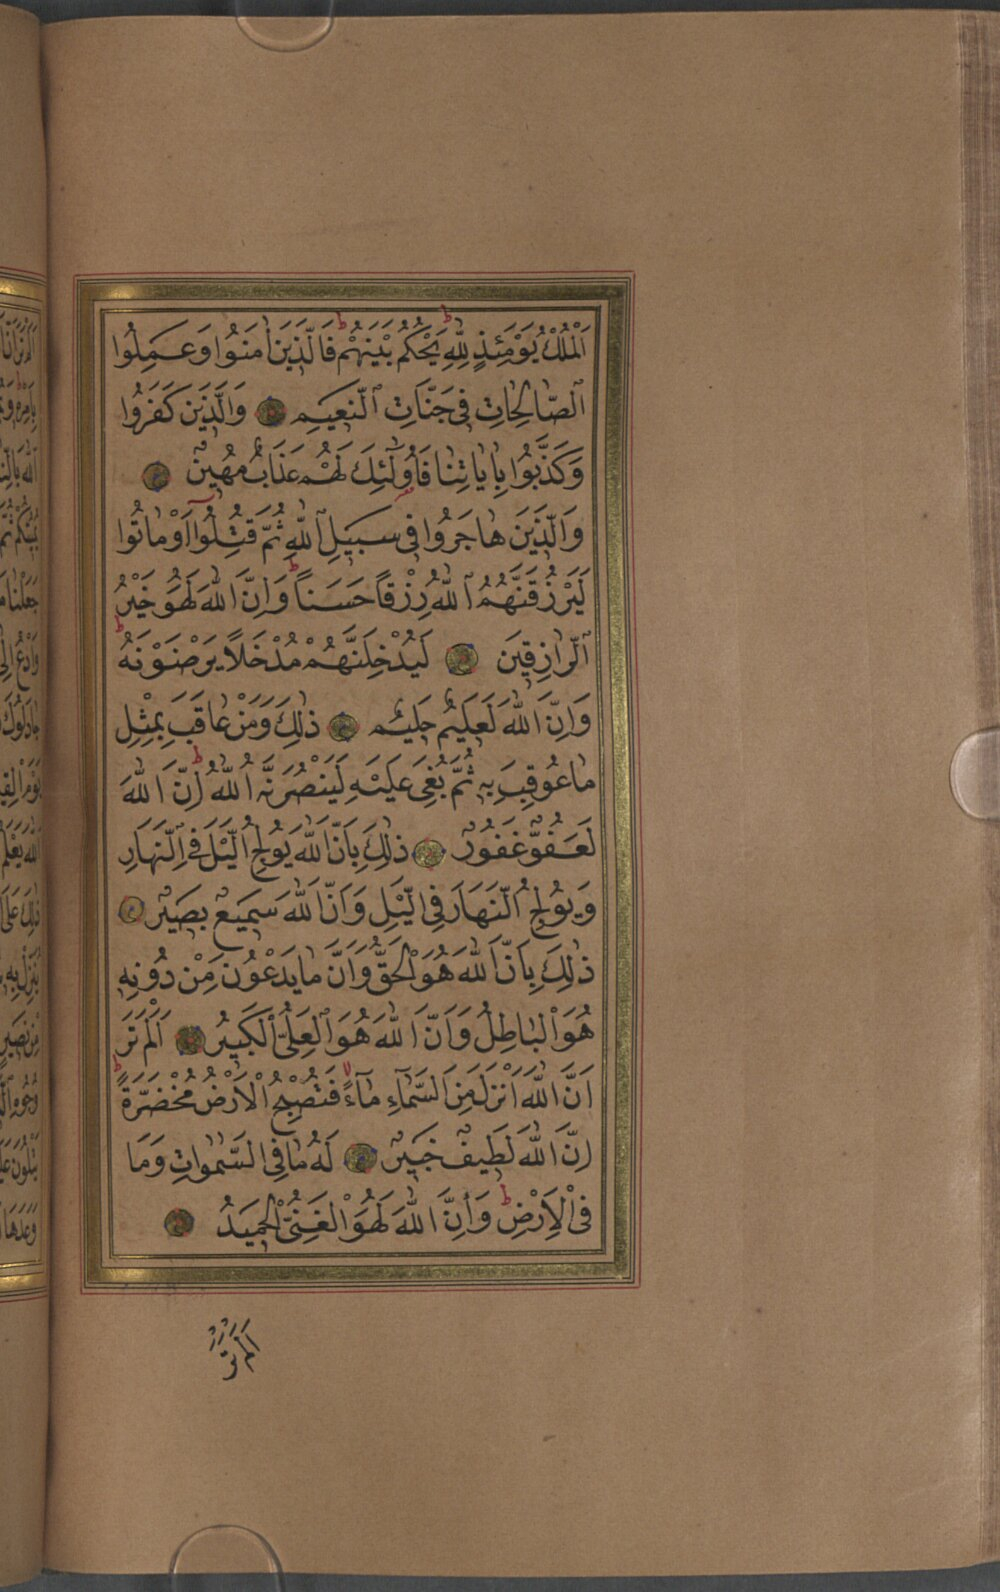 اَلْمُلْكُ يَوْمَئِذٍ لِلّٰهِ يَحْكُمُ بَيْنَهُمْ فَالَّذِينَ اٰمَنُوا وَعَمِلُوا
الصَّالِحَاتِ فِى جَنَّاتِ النَّعِيمِ وَالَّذِينَ كَفَرُوا
وَكَذَّبُوا بِاٰيَاتِنَا فَاُولٰٓئِكَ لَهُمْ عَذَابٌ مُهِينٌ
وَالَّذِينَ هَاجَرُوا فِى سَبِيلِ اللّٰهِ ثُمَّ قُتِلُوٓا اَوْ مَاتُوا
لَيَرْزُقَنَّهُمُ اللّٰهُ رِزْقًا حَسَنًا وَاِنَّ اللّٰهَ لَهُوَ خَيْرُ
الرَّازِقِينَ لَيُدْخِلَنَّهُمْ مُدْخَلًا يَرْضَوْنَهُ
وَاِنَّ اللّٰهَ لَعَلِيمٌ حَلِيمٌ ذٰلِكَ وَمَنْ عَاقَبَ بِمِثْلِ
مَا عُوقِبَ بِهِ ثُمَّ بُغِىَ عَلَيْهِ لَيَنْصُرَنَّهُ اللّٰهُ اِنَّ اللّٰهَ
لَعَفُوٌّ غَفُورٌ ذٰلِكَ بِاَنَّ اللّٰهَ يُولِجُ الَّيْلَ فِى النَّهَارِ
وَيُولِجُ النَّهَارَ فِى الَّيْلِ وَاَنَّ اللّٰهَ سَمِيعٌ بَصِيرٌ
ذٰلِكَ بِاَنَّ اللّٰهَ هُوَ الْحَقُّ وَاَنَّ مَا يَدْعُونَ مِنْ دُونِهِ
هُوَ الْبَاطِلُ وَاَنَّ اللّٰهَ هُوَ الْعَلِىُّ الْكَبِيرُ اَلَمْ تَرَ
اَنَّ اللّٰهَ اَنْزَلَ مِنَ السَّمَآءِ مَآءً فَتُصْبِحُ الْاَرْضُ مُخْضَرَّةً
اِنَّ اللّٰهَ لَطِيفٌ خَبِيرٌ لَهُ مَا فِى السَّمٰوَاتِ وَمَا
فِى الْاَرْضِ وَاِنَّ اللّٰهَ لَهُوَ الْغَنِىُّ الْحَمِيدُ
اَلَمْ تَرَ